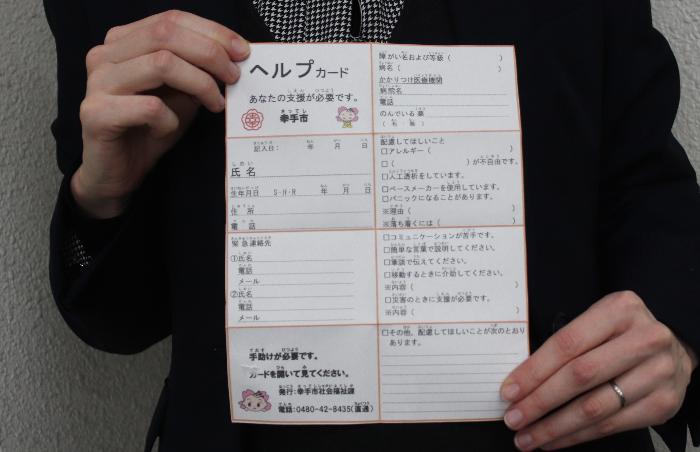 ヘルプカード
あなたの支援が必要です。
幸手市
記入日： 年 月 日
氏名
生年月日 S・H・R 年 月 日
住所
電話
緊急連絡先
①氏名
電話
メール
②氏名
電話
メール
手助けが必要です。
カードを開いて見てください。
発行：幸手市社会福祉課
電話：0480-42-8435(直通)
障がい名および等級（ ）
病名（ ）
かかりつけ医療機関
病院名
電話
のんでいる薬
（ 有 ・ 無 ）
配慮してほしいこと
□アレルギー（ ）
□（ ）が不自由です。
□人工透析をしています。
□ペースメーカーを使用しています。
□パニックになることがあります。
※理由（ ）
※落ち着くには（ ）
□コミュニケーションが苦手です。
□簡単な言葉で説明してください。
□筆談で伝えてください。
□移動するときに介助してください。
※内容（ ）
□災害のときに支援が必要です。
※内容（ ）
□その他、配慮してほしいことが次のとおり
あります。